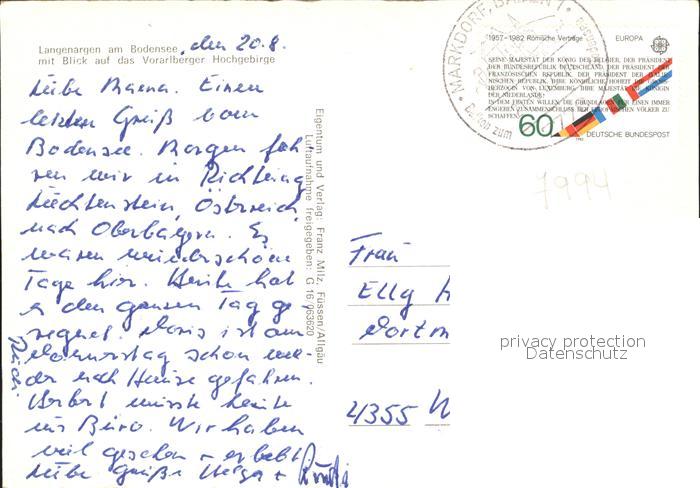 Langenargen am Bodensee, den 20.8.
mit Blick auf das Vorarlberger Hochgebirge
Liebe Mama. Einen
letzten Gruß vom
Bodensee. Morgen fah
ren wir in Richtung
Liechtenstein, Österreich,
nach Oberbayern. Es
waren wunderschöne
Tage hier. Heute hat
es den ganzen Tag ge
regnet. Doris ist am
Donnerstag schon wie-
der nach Hause gefahren.
Herbert musste heute
ins Büro. Wir haben
viel gesehen + erlebt
Liebe Grüße Helga +
Eigentum und Verlag: Franz Milz, Füssen/Allgäu
Luftaufnahme freigegeben: G 16/063620
MARKDORF, BADEN 1
1957-1982 Römische Verträge
EUROPA
SEINE MAJESTÄT DER KÖNIG DER BELGIER, DER PRÄSIDENT
DER BUNDESREPUBLIK DEUTSCHLAND, DER PRÄSIDENT DER
FRANZÖSISCHEN REPUBLIK, DER PRÄSIDENT DER ITALIE-
NISCHEN REPUBLIK, IHRE KÖNIGLICHE HOHEIT DIE GROSS-
HERZOGIN VON LUXEMBURG, IHRE MAJESTÄT DIE KÖNIGIN
DER NIEDERLANDE,
IN DEM FESTEN WILLEN, DIE GRUNDLAGEN FÜR EINEN IMMER
ENGEREN ZUSAMMENSCHLUSS DER EUROPÄISCHEN VÖLKER ZU
SCHAFFEN,
60
DEUTSCHE BUNDESPOST
7994
Frau
Elly
Dortm
4355 W
privacy protection
Datenschutz